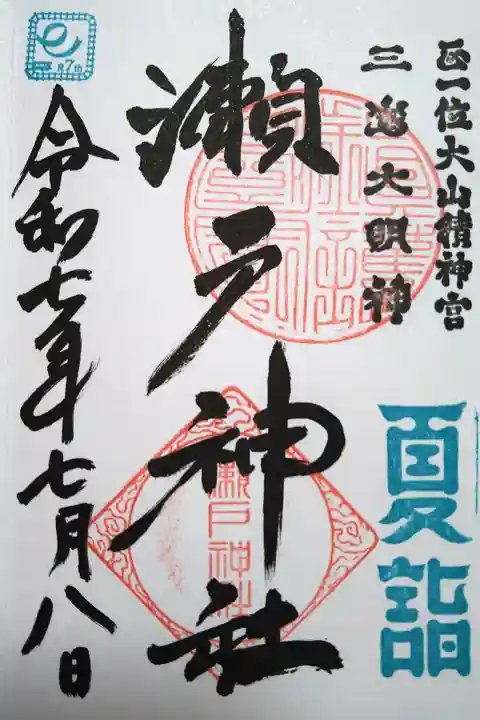 正一位大山積神宮
三嶋大明神
夏詣
瀬戸神社
瀬戸神社
令和七年七月八日
R7th